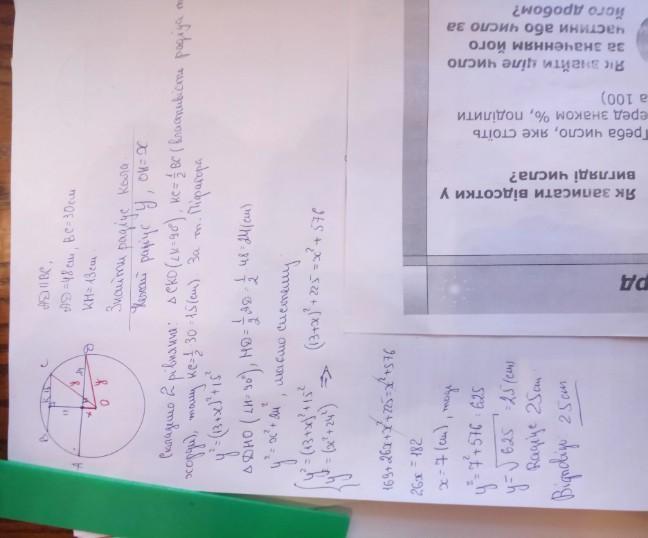 AD || BC,
AD=48см, BC=30см
KH=13см
Знайти радіус кола
Нехай радіус y, OH=x
B K C
A D
x y
O
Складемо 2 рівняння: △CKO (∠K=90°), KC=½BC (властивість радіуса
хорди), тому KC=½·30=15(см) За т. Піфагора
y²=(13+x)²+15²
△DHO (∠H=90°), HD=½AD=½·48=24(см)
y²=x²+24², маємо систему
{y²=(13+x)²+15²
{y²=(x²+24²) => (13+x)²+225=x²+576
169+26x+x²+225=x²+576
26x=182
x=7(см), тоді
y²=7²+576=625
y=√625=25(см)
Радіус 25см
Відповідь 25см
рд
Як записати відсотки у
вигляді числа?
Треба число, яке стоїть
еред знаком %, поділити
а 100)
Як знайти ціле число
за значенням його
частини або число за
його дробом?